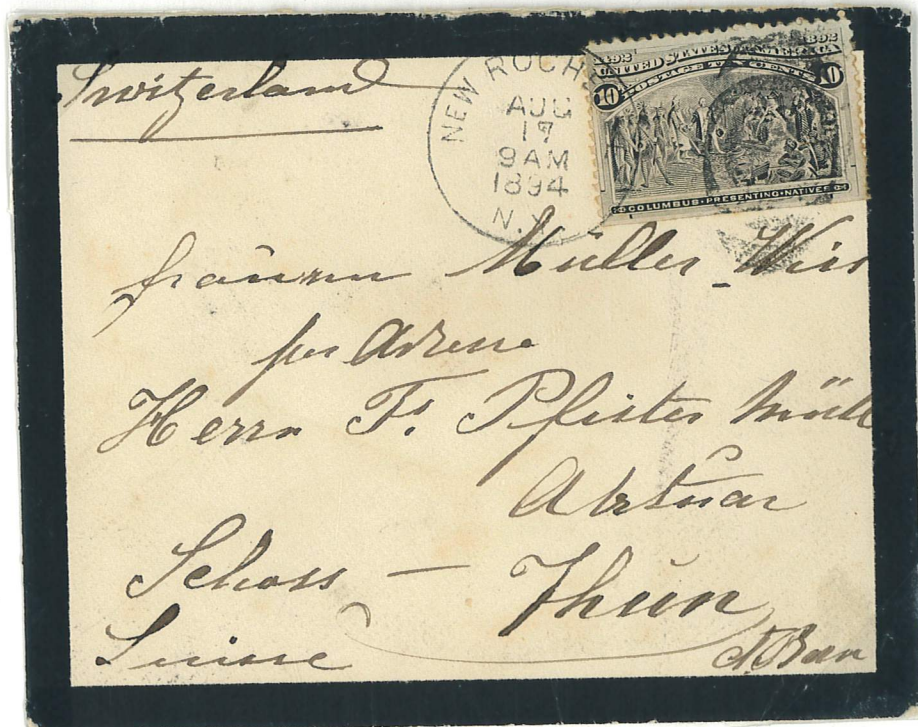 Switzerland
NEW ROCH
AUG
17
9AM
1894
N.Y.
1492 1892
UNITED STATES OF AMERICA
POSTAGE TEN CENTS
10 10
COLUMBUS PRESENTING NATIVES
Müller Wirt
per Adresse
Herrn F. Pfister Müll
Aktuar
Schloss — Thun
Suisse
Ct. Bern